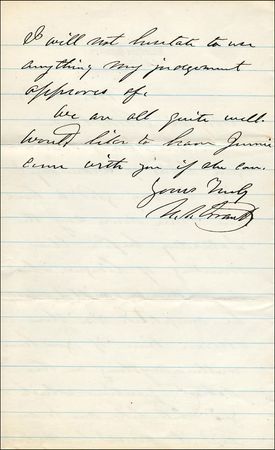 I will not hesitate to use
anything my judgement
approves of.
We are all quite well.
Would like to have Jennie
come with you if she can.
Yours Truly
U. S. Grant